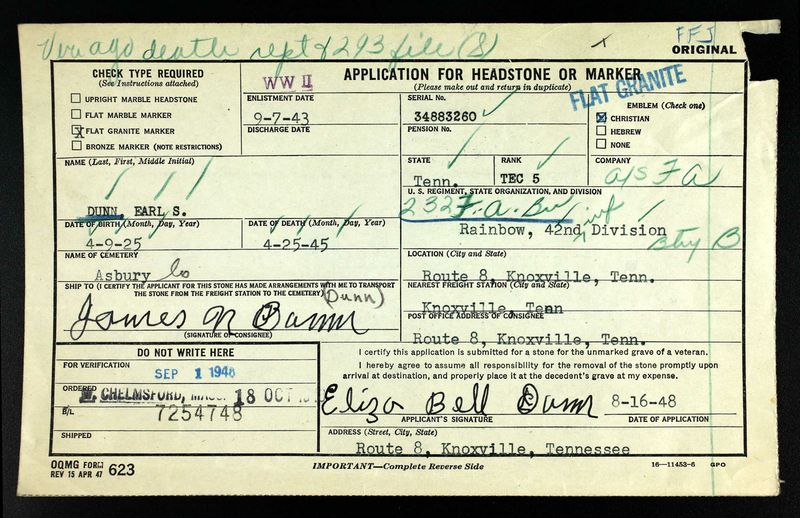 Ver ago death rept & 293 file (S)
FFJ
ORIGINAL
CHECK TYPE REQUIRED
(See Instructions attached)
UPRIGHT MARBLE HEADSTONE
FLAT MARBLE MARKER
X FLAT GRANITE MARKER
BRONZE MARKER (NOTE RESTRICTIONS)
WW II
ENLISTMENT DATE
9-7-43
DISCHARGE DATE
APPLICATION FOR HEADSTONE OR MARKER
(Please make out and return in duplicate)
FLAT GRANITE
SERIAL No.
34883260
PENSION No.
EMBLEM (Check one)
X CHRISTIAN
HEBREW
NONE
NAME (Last, First, Middle Initial)
DUNN, EARL S.
STATE
Tenn.
RANK
TEC 5
COMPANY
U. S. REGIMENT, STATE ORGANIZATION, AND DIVISION
232 F.A. Bn
Rainbow, 42nd inf Division
Btry B
DATE OF BIRTH (Month, Day, Year)
4-9-25
DATE OF DEATH (Month, Day, Year)
4-25-45
NAME OF CEMETERY
Asbury
LOCATION (City and State)
Route 8, Knoxville, Tenn.
SHIP TO (I CERTIFY THE APPLICANT FOR THIS STONE HAS MADE ARRANGEMENTS WITH ME TO TRANSPORT
THE STONE FROM THE FREIGHT STATION TO THE CEMETERY)
(Dunn)
James N Dunn
(SIGNATURE OF CONSIGNEE)
NEAREST FREIGHT STATION (City and State)
Knoxville, Tenn
POST OFFICE ADDRESS OF CONSIGNEE
Route 8, Knoxville, Tenn.
DO NOT WRITE HERE
FOR VERIFICATION
SEP 1 1948
ORDERED
CHELMSFORD, MASS. 18 OCT
B/L
7254748
SHIPPED
I certify this application is submitted for a stone for the unmarked grave of a veteran.
I hereby agree to assume all responsibility for the removal of the stone promptly upon
arrival at destination, and properly place it at the decedent's grave at my expense.
Eliza Bell Dunn
8-16-48
APPLICANT'S SIGNATURE
DATE OF APPLICATION
ADDRESS (Street, City, State)
Route 8, Knoxville, Tennessee
OQMG FORM 623
REV 15 APR 47
IMPORTANT—Complete Reverse Side
16—11453-6 GPO